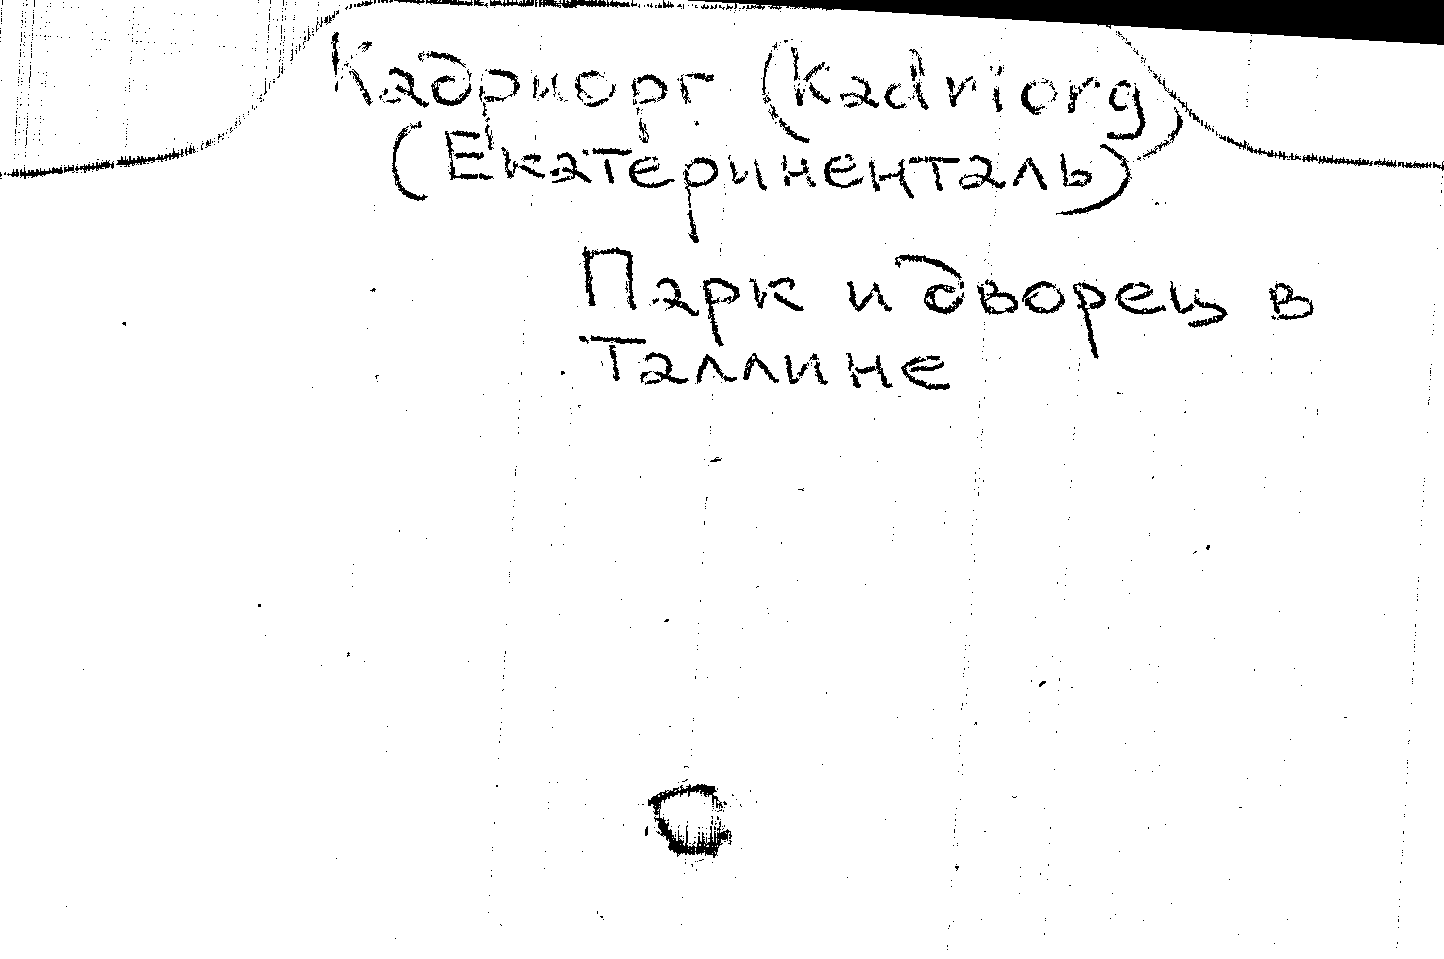 Кадриорг (Kadriorg)
(Екатериненталь)
Парк и дворец в
Таллине